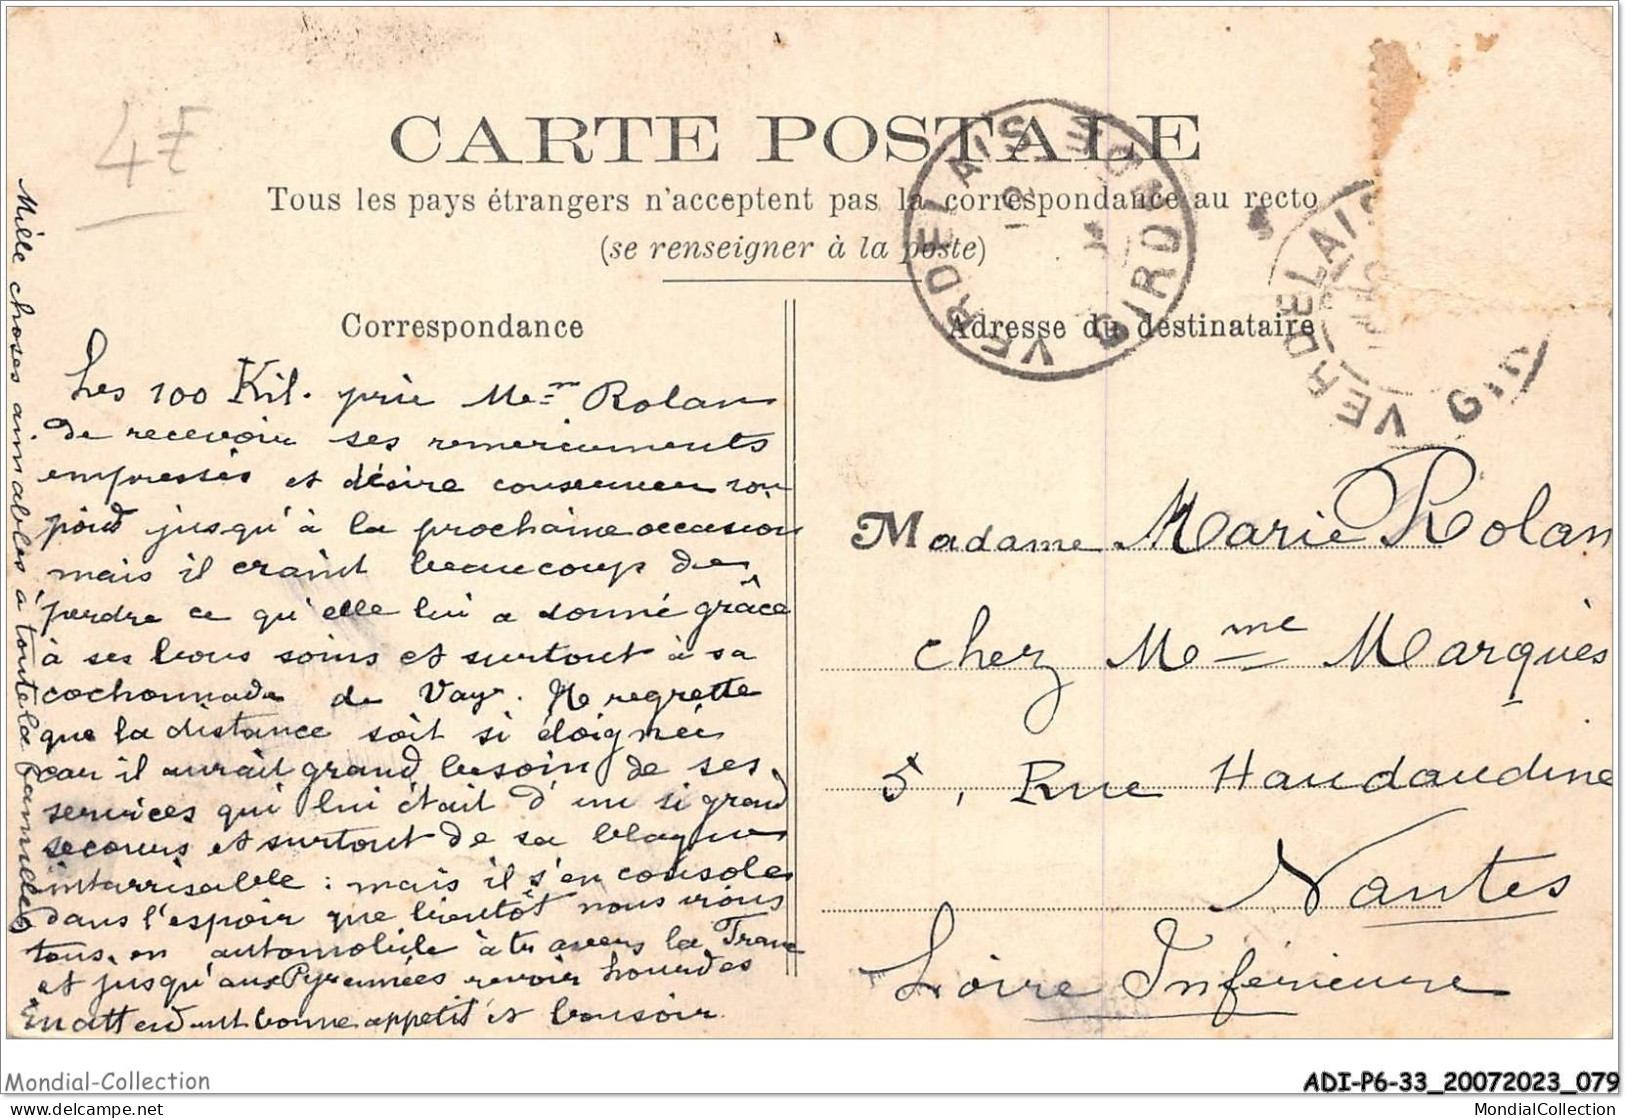 4 F
CARTE POSTALE
Tous les pays étrangers n'acceptent pas la correspondance au recto
(se renseigner à la poste)
VERDELAIS GIRONDE
VERDELAIS GIR
Correspondance
Adresse du destinataire
Les 100 Kil. prie Mme Rolan
de recevoir ses remerciements
empressés et désire conserver son
poids jusqu'à la prochaine occasion
mais il craint beaucoup de
perdre ce qu'elle lui a donné grâce
à ses bons soins et surtout à sa
cochonnade de Vay. Il regrette
que la distance soit si éloignée
car il aurait grand besoin de ses
services qui lui était d'un si grand
secours et surtout de sa blague
intarrisable : mais il s'en console
dans l'espoir que bientôt nous irons
tous en automobile à travers la France
et jusqu'aux Pyrennées revoir Lourdes
En attendant bonne appetit et bonsoir.
Mille choses aimables à toute la famille
Madame Marie Rolan
chez Mme Marquès
5, Rue Haudaudine
Nantes
Loire Inférieure
Mondial-Collection
ADI-P6-33_20072023_079
www.delcampe.net
MondialCollection